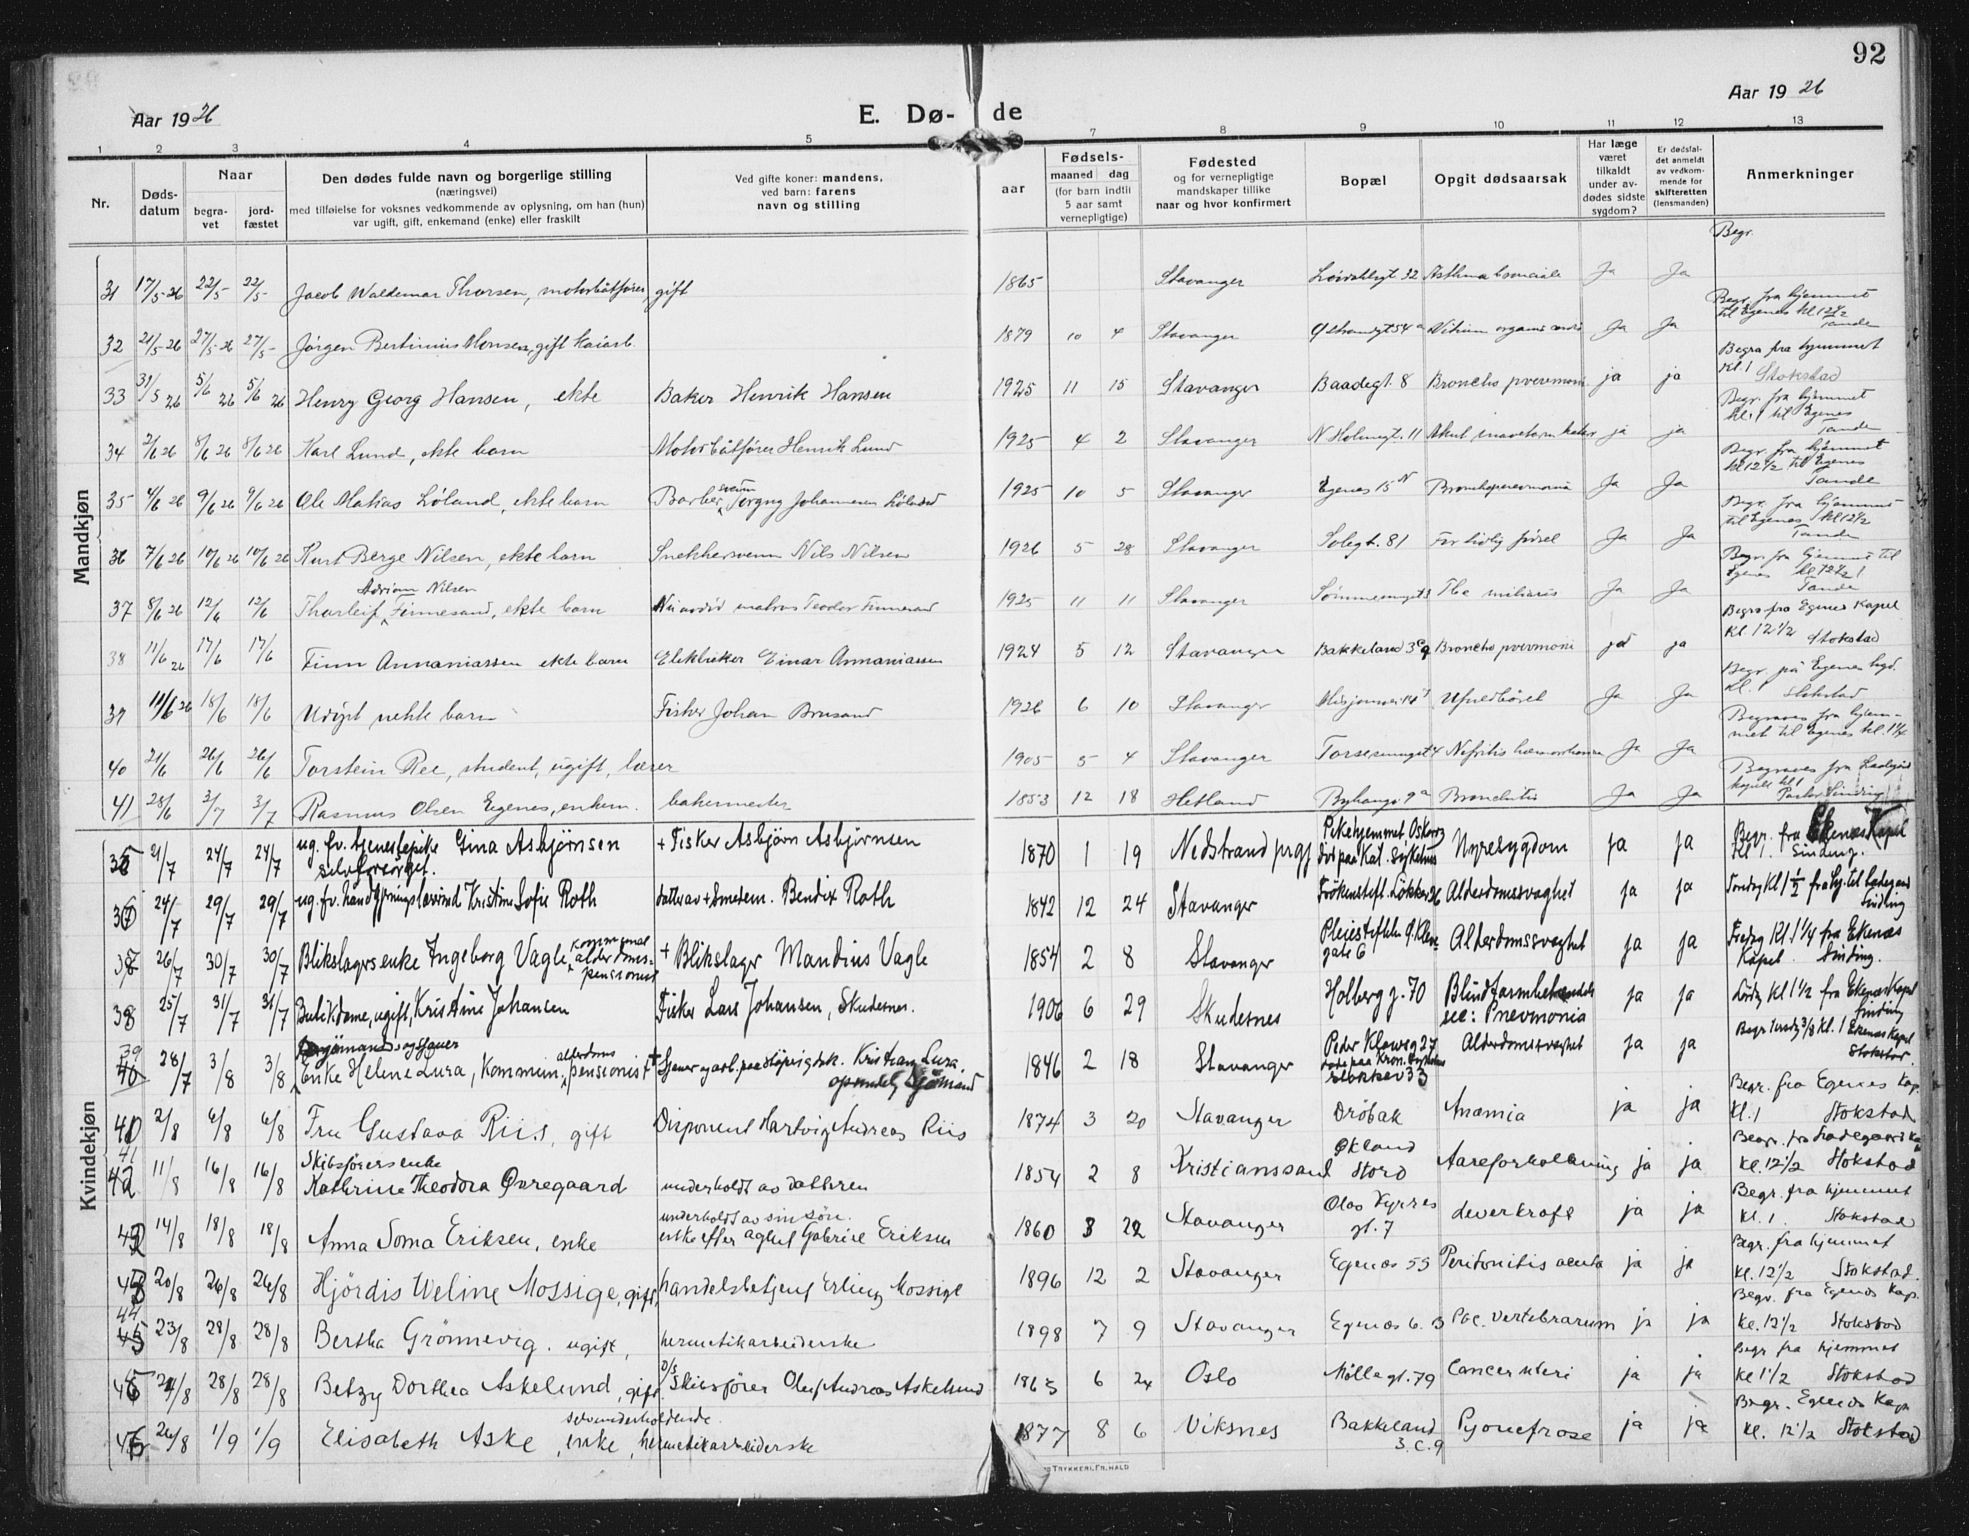 92
Aar 1926
E. Dø-de
Aar 1926
1 2 3 4 5 7 8 9 10 11 12 13
Nr.
Døds-datum
Naar
begra-vet
jord-fæstet
Den dødes fulde navn og borgerlige stilling
(næringsvei)
med tilføielse for voksnes vedkommende av oplysning, om han (hun)
var ugift, gift, enkemand (enke) eller fraskilt
Ved gifte koner: mandens,
ved barn: farens
navn og stilling
aar
Fødsels-
maaned dag
(for barn indtil
5 aar samt
vernepligtige)
Fødested
og for vernepligtige
mandskaper tillike
naar og hvor konfirmert
Bopæl
Opgit dødsaarsak
Har læge
været
tilkaldt
under av-
dødes sidste
sygdom?
Er dødsfal-
det anmeldt
av vedkom-
mende for
skifteretten
(lensmanden)
Anmerkninger
Mandkjøn
Begr.
31 17/5-26 22/5- 22/5- Jacob Waldemar Thorsen, motorbåtfører, gift 1865 Stavanger 32 Asthma Ja Ja
Begr. fra hjemmet
til Egenes kl 12 1/2
Tande
32 21/5-26 27/5-26 27/5- Jörgen Bertinius Monsen, gift kaiarb. 1879 10 4 Stavanger Ja Ja
Begra fra hjemmet
kl. 1 Stokstad
33 31/5 26 5/6 26 5/6 26 Henry Georg Hansen, ekte Baker Henrik Hansen 1925 11 15 Stavanger Baadegt. 8 Broncho pvevmoni ja ja
Begr. fra hjemmet
kl. 1 til Egenes
Tande
34 2/6 26 8/6 26 8/6 26 Karl Lund, ekte barn Motorbåtfører Henrik Lund 1925 4 2 Stavanger N Holmegt. 11 Akut ja ja
Begr. fra hjemmet
kl 12 1/2 til Egenes
Tande
35 4/6 26 9/6 26 9/6 26 Ole Matias Löland, ekte barn Barbersvenn Johannesen Löland 1925 10 5 Stavanger Egenes 15 Bronchopnevmonia Ja Ja
Begr. fra hjemmet
til Egenes kl 12 1/2
Tande
36 7/6 26 10/6 26 10/6 26 Kurt Berge Nilsen, ekte barn Snekkersvenn Nils Nilsen 1926 5 28 Stavanger Solegt. 81 For tidlig födsel Ja Ja
Begr. fra hjemmet til
Egenes kl 12 1/2
Tande
Adrian Nilsen
37 8/6 26 12/6 12/6 Thorleif Finnesand, ekte barn matros Teodor Finnesand 1925 11 11 Stavanger Tbc miliaris Ja Ja
Begra fra Egenes Kapel
kl 12 1/2 Stokstad
38 11/6 26 17/6 17/6 Finn Annaniassen ekte barn Elektriker Einar Annaniassen 1924 5 12 Stavanger Bakkeland 3 Broncho pvevmoni ja ja
Begr. på Egenes
kl. 1 Stokstad
39 11/6 26 18/6 18/6 Udöpt uekte barn Fisker Johan Brusand 1926 6 10 Stavanger Ufuldbåret Ja Ja
Begraves fra hjem-
met til Egenes kl. 1 1/4
40 21/6 26/6 26/6 Torstein Ree, student, ugift, lærer 1905 5 4 Stavanger Nefritis Ja Ja
Begraves fra Ladegård
kapell kl 1 Pastor Sinding
41 28/6 3/7 3/7 Rasmus Olsen Egenes, enkem. bakermester 1853 12 18 Hetland 9a Bronchitis Ja Ja
Kvindekjøn
35 21/7 24/7 24/7 ug. fv. tjenestepike Gina Asbjørnsen
selvforsørget. + Fisker Asbjørn Asbjørnsen 1870 1 19 Nedstrand prgj Pikehjemmet
död paa Kat. Sykehus Nyresygdom ja ja Begr. fra Ekenæs Kapel
Kl 1. Sinding.
36 24/7 29/7 29/7 ug. fv. haandgjerningslærerind Kristine Sofie Roth datter av + Smedem. Bendix Roth 1842 12 24 Stavanger Frökenstift. Lökkev 26 Alderdomssvaghet ja ja Torsdag Kl 1 1/2 fra hj. til Ladegaard
Sinding
37 26/7 30/7 30/7 Blikslagersenke Ingeborg Vagle, kommunal
alderdoms-
pensionist + Blikslager Mandius Vagle 1854 2 8 Stavanger Pleiestiftelsen
gate 6 Alderdomssvaghet ja ja Fredag Kl. 1 1/4 fra Ekenæs
Kapel. Sinding.
38 25/7 31/7 31/7 Butikdame, ugift, Kristine Johansen Fisker Lars Johansen, Skudesnes. 1906 6 29 Skudesnes Holberg g. 70 Blindtarmbetændelse
sec: Pnevmonia ja ja Lördag Kl 1 1/2 fra Ekenæs Kapel
Sinding
39 28/7 3/8 3/8 Enke Helene Lura, Kommun. alderdoms pensionist + Kristian Lura.
oprindelig Sjömand 1846 2 18 Stavanger Peder Klowsg 27
Alderdomssvaghet ja ja Begr. tirsdag 3/8 kl. 1 Ekenæs Kapel
Stokstad.
40 2/8 6/8 6/8 Fru Gustava Riis, gift Disponent Hartvig Andreas Riis 1874 3 20 Stavanger Dröbak Anæmia ja ja Begr. fra Egenes Kap.
kl. 1 Stokstad
41 11/8 16/8 16/8 Skibsförersenke
Kathrine Theodora Øvregaard underholdt av datteren 1854 2 8 Kristianssand Økland
Stord Aareforkalkning ja ja Begr. fra Ladegaard Kap
Kl. 12 1/2 Stokstad
42 14/8 18/8 18/8 Anna Soma Eriksen, enke underholdt av sin søn.
enke efter Gabriel Eriksen 1860 3 22 Stavanger Olav Kyrres
gt. 7 Leverkræft ja ja Begr. fra hjemmet
kl. 1. Stokstad
43 20/8 26/8 26/8 Hjördis Weline Mossige, gift, handelsbetjent Erling Mossige 1896 12 2 Stavanger Egenæs 55 Peritonitis acuta ja ja Begr. fra hjemmet
kl. 12 1/2 Stokstad.
44 23/8 28/8 28/8 Bertha Grönnevig. ugift, hermetikarbeiderske 1898 7 9 Stavanger Egenæs 6. B Tbc. vertebrarum ja ja Begr. fra Egenæs Kap.
Kl. 12 1/2 Stokstad
45 24/8 28/8 28/8 Betzy Dorthea Askelund, gift D/S Skibsfører Oluf Andreas Askelund 1863 6 24 Oslo Möllegt. 79 Cancer uteri ja ja Begr fra hjemmet
Kl 1 1/2 Stokstad
46 26/8 1/9 1/9 Elisabeth Aske, enke, selvunderholdende
hermetikarbeiderske 1877 8 6 Viksnes Bakkeland
3. C. 9 Pyonefrose ja ja Begr. Egenæs Kap
kl. 12 1/2 Stokstad
TRYKKERI, FR. HALD